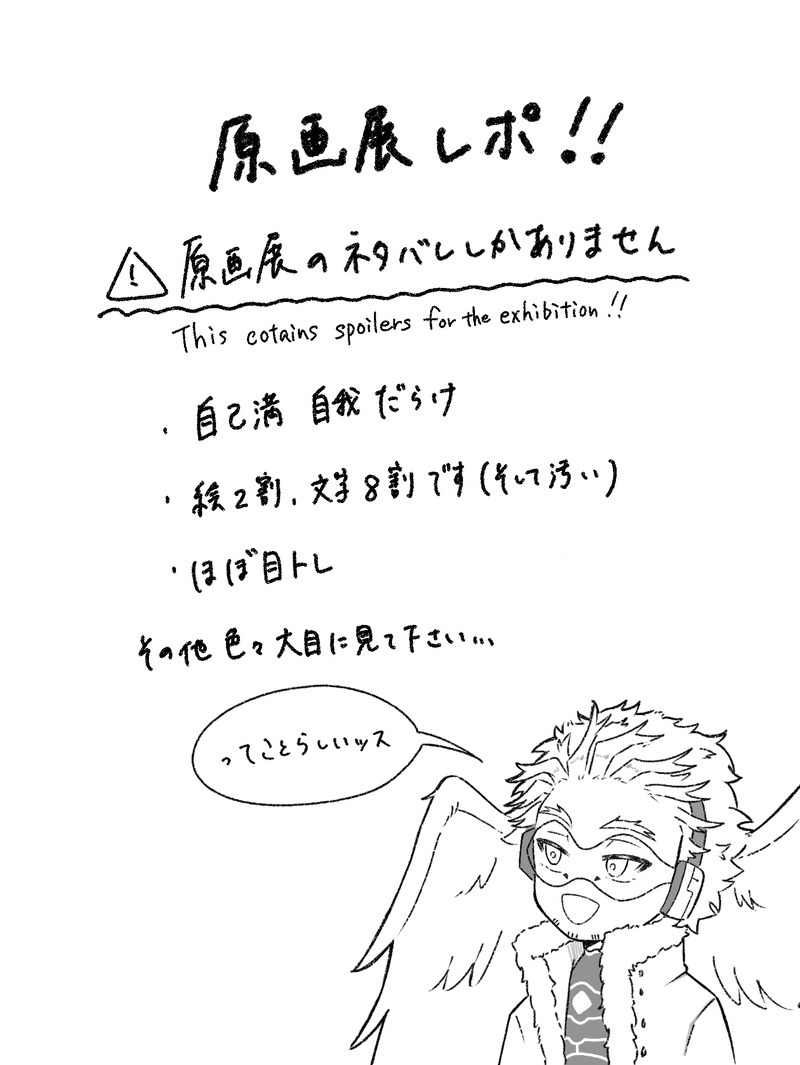 原画展レポ!!
⚠原画展のネタバレしかありません
This cotains spoilers for the exhibition!!
・自己満 自我だらけ
・絵2割、文字8割です(そして汚い)
・ほぼ目トレ
その他色々大目に見て下さい...
ってことらしいッス